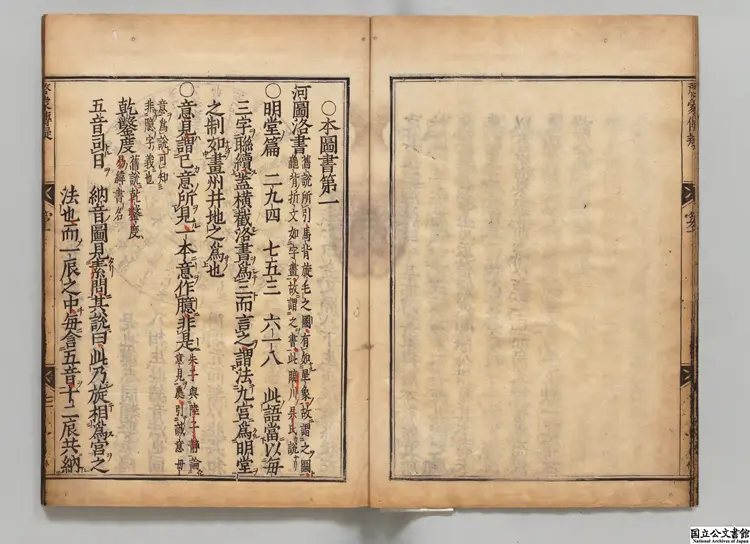 ○本圖書第一
河圖洛書舊說所引馬背旋毛之圖有如星象故謂之圖
龜背折文如字畫故謂之書此臨川吳氏說
○明堂篇 二九四 七五三 六一八 此語當以每
三字聯續蓋橫截洛書爲三而言之謂法九宮爲明堂
之制如畫州井地之爲也
○意見謂己意所見一本意作臆非是朱子與陸子靜論
意見處引誠意毋
意爲說可知
非臆字義也
乾鑿度舊說乾鑿度
易緯書名
五音司日 納音圖見素問其說曰此乃旋相爲宮之
法也而一辰之中每含五音十二辰共納
国立公文書館
National Archives of Japan